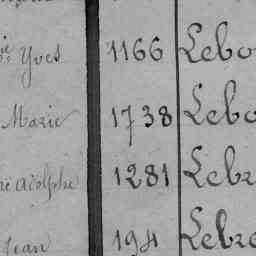 Yves 1166 Lebo
Marie 1738 Lebo
Adolphe 1281 Lebr
Jean 194 Lebre